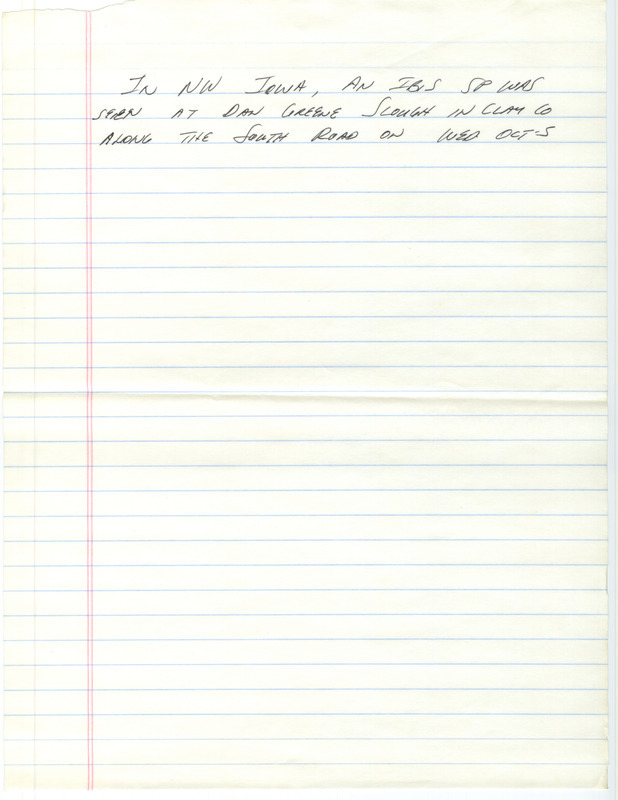 IN NW IOWA, AN IBIS SP WAS
SEEN AT DAN GREENE SLOUGH IN CLAY CO
ALONG THE SOUTH ROAD ON WED OCT 5